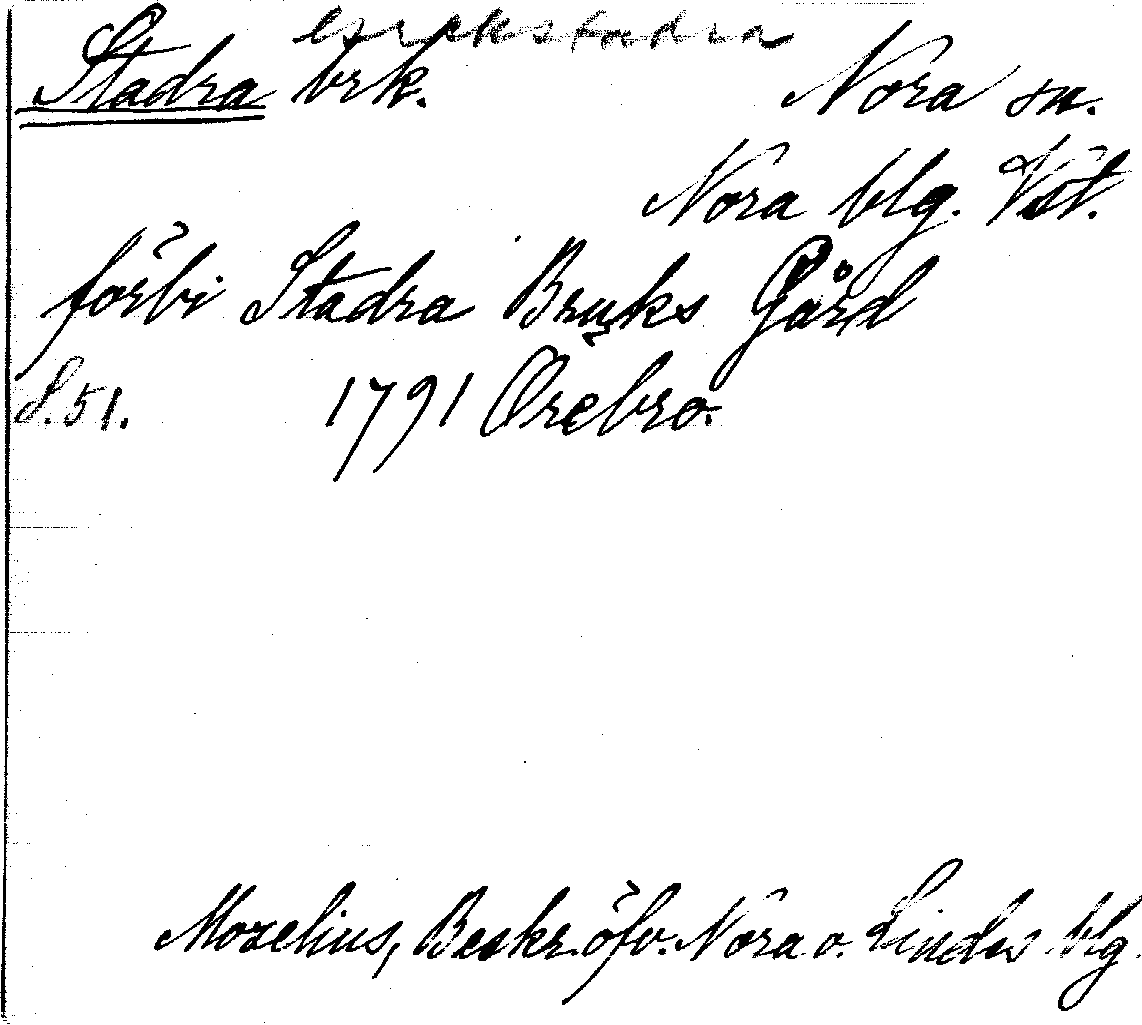 Stadra brk. Nora sn.
Nora blg. Vstl.
förbi Stadra Bruks Gård
S. 51. 1791 Örebro.
Moxelius, Beskr. öfv. Nora o. Lindes blg.